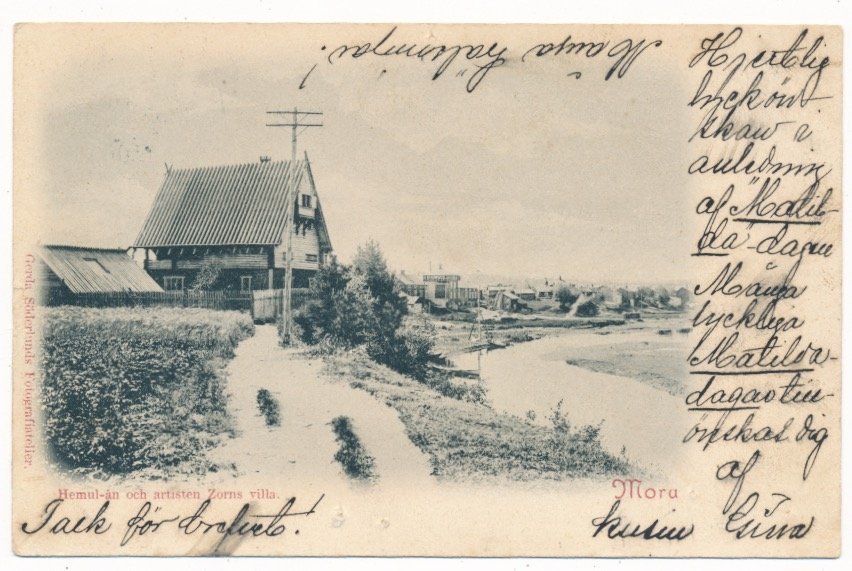 Många hälsningar!
Hjertlig
lyckön-
skan i
anledning
af "Matil-
da"-dagen
Många
lyckliga
Matilda-
dagar till-
önskas dig
af
kusin
Tack för brefvet!
Gerda Söderlunds Fotografiatelier.
Hemul-ån och artisten Zorns villa.
Mora